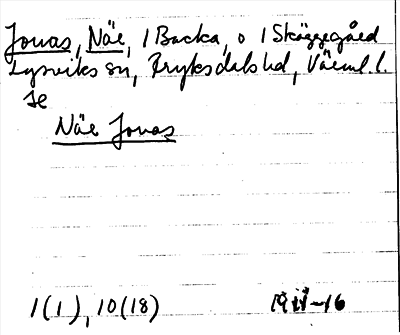 Jonas, Näe, i Backa, o i Skäggegård
Lysviks sn, Fryksdals hd, Värml. l.
Se
Näe Jonas
1(1), 10(18)